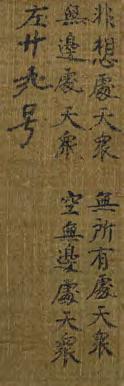 非想處天衆
無所有處天衆
無邊處天衆
空無邊處天衆
左廿九号